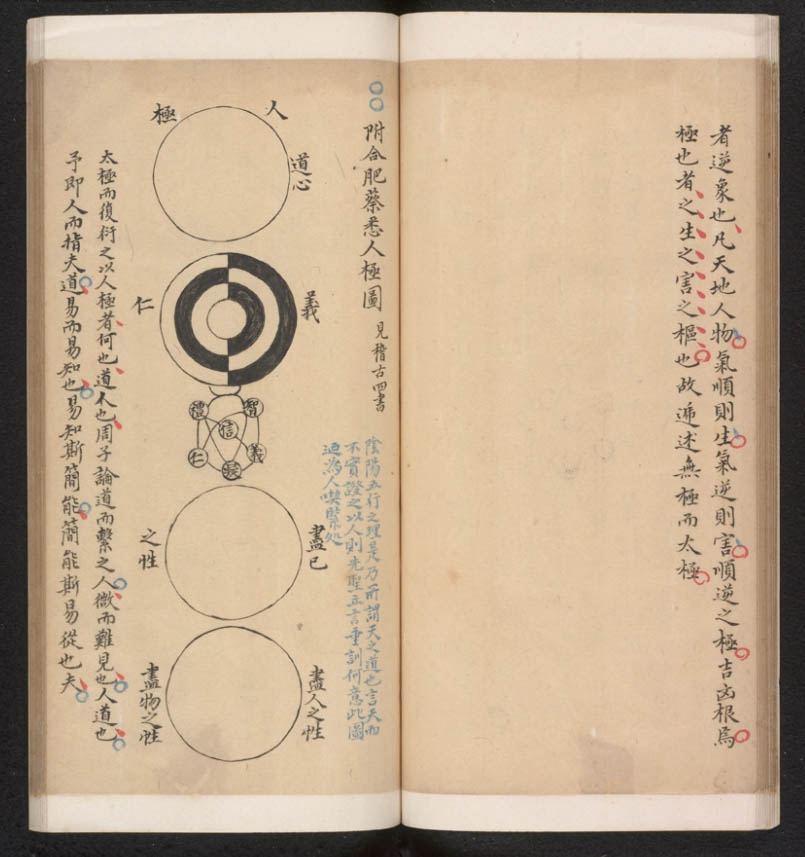 者逆象也凡天地人物氣順則生氣逆則害順逆之極吉凶根焉
極也者之生之害之樞也故遞述無極而太極
附合肥蔡悉人極圖 見稽古四書
陰陽五行之理是乃所謂天之道也言天而
不實證之以人則先聖立言垂訓何意此圖
迺為人喫緊処
人極
道心
義
仁
智
禮
信
義
仁
盡己
之性
盡人之性
盡物之性
太極而復衍之以人極者何也道不也周子論道而繫之人微而難見也人道也
予即人而指夫道易而易知也易知斯簡能簡能斯易從也夫